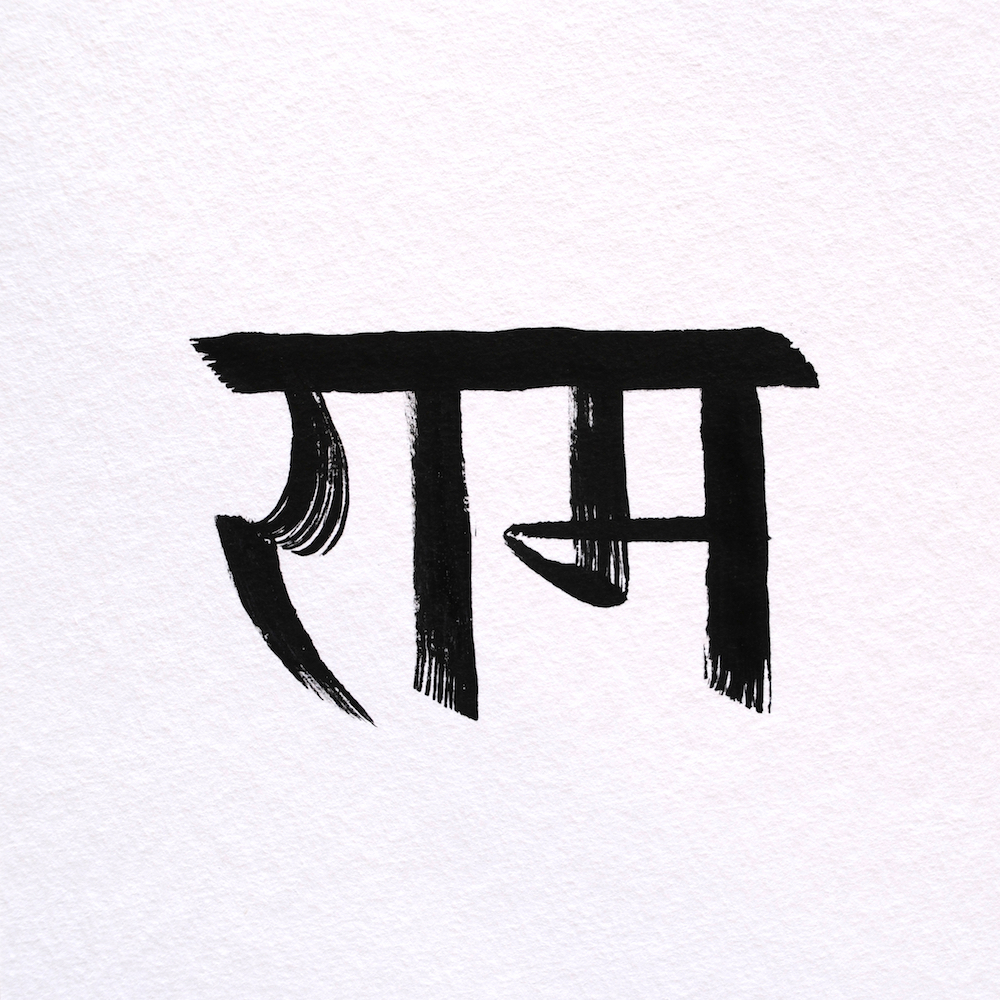 राम